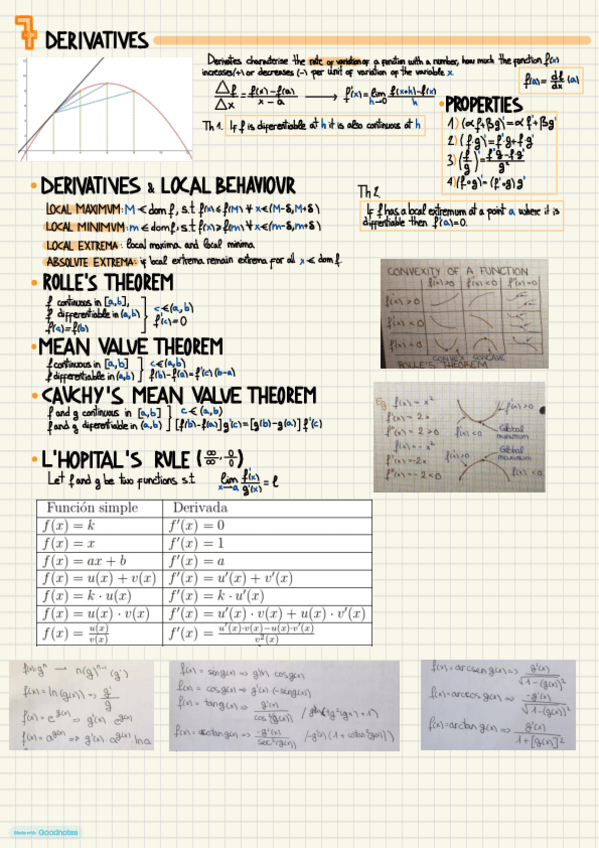 7 DERIVATIVES
Derivatives characterise the rate of variation of a function with a number, how much the function f(x)
increases(+) or decreases (-) per unit of variation of the variable x.
Δf/Δx = f(x)-f(a)/x-a → f'(x)=lim h→0 f(x+h)-f(x)/h
f'(a)= df/dx (a)
Th 1. If f is diferentiable at h it is also continuous at h
• PROPERTIES
1) (αf+βg)'=αf'+βg'
2) (f·g)'=f'g+f·g'
3) (f/g)'=f'g-f·g'/g²
4) (f∘g)'=(f'∘g)g'
• DERIVATIVES & LOCAL BEHAVIOUR
LOCAL MAXIMUM: M ∈ dom f, s.t f(x)≤f(M) ∀ x∈(M-δ,M+δ)
LOCAL MINIMUM: m∈dom f, s.t f(x)≥f(m) ∀ x∈(m-δ,m+δ)
LOCAL EXTREMA: local maxima and local minima
ABSOLUTE EXTREMA: if local extrema remain extrema for all x ∈ dom f.
Th 2.
If f has a local extremum at a point a where it is
differentiable then f'(a)=0.
• ROLLE'S THEOREM
f continuous in [a,b],
f differentiable in (a,b)
f(a)=f(b)
c∈(a,b)
f'(c)=0
• MEAN VALUE THEOREM
f continuous in [a,b]
f differentiable in (a,b)
c∈(a,b)
f(b)-f(a)=f'(c)(b-a)
• CAUCHY'S MEAN VALUE THEOREM
f and g continuous in [a,b]
f and g diferentiable in (a,b)
c∈(a,b)
[f(b)-f(a)]g'(c)=[g(b)-g(a)]f'(c)
• L'HOPITAL'S RULE (∞/∞, 0/0)
Let f and g be two functions s.t lim x→a f'(x)/g'(x) = l
CONVEXITY OF A FUNCTION
f'(x)>0 f'(x)<0 f'(x)=0
f''(x)>0
f''(x)<0
f''(x)=0
CONVEX CONCAVE
ROLLE'S THEOREM
Eg. f(x)=x²
f'(x)=2x
f''(x)=2>0
f(x)=-x²
f'(x)=-2x
f''(x)=-2<0
f'(x)>0
f'(x)<0
Global
minimum
f'(x)>0
Global
maximum
f'(x)<0
Función simple Derivada
f(x) = k f′(x) = 0
f(x) = x f′(x) = 1
f(x) = ax + b f′(x) = a
f(x) = u(x) + v(x) f′(x) = u′(x) + v′(x)
f(x) = k · u(x) f′(x) = k · u′(x)
f(x) = u(x) · v(x) f′(x) = u′(x) · v(x) + u(x) · v′(x)
f(x) = u(x)/v(x) f′(x) = u′(x)·v(x)−u(x)·v′(x)/v²(x)
f(x)=gⁿ → n(g)ⁿ⁻¹ (g')
f(x)=ln(g(x)) => g'/g
f(x)=e^g(x) => g'(x) e^g(x)
f(x)=a^g(x) => g'(x) a^g(x) · ln a
f(x)=sen g(x) => g'(x) · cos g(x)
f(x)=cos g(x) => g'(x) (-sen g(x))
f(x)=tan g(x) => g'(x)/cos²g(x)
f(x)=arcsen g(x) => g'(x)/√1-(g(x))²
f(x)=arccos g(x) => -g'(x)/√1-(g(x))²
f(x)=arctan g(x) => g'(x)/1+[g(x)]²
Made with Goodnotes